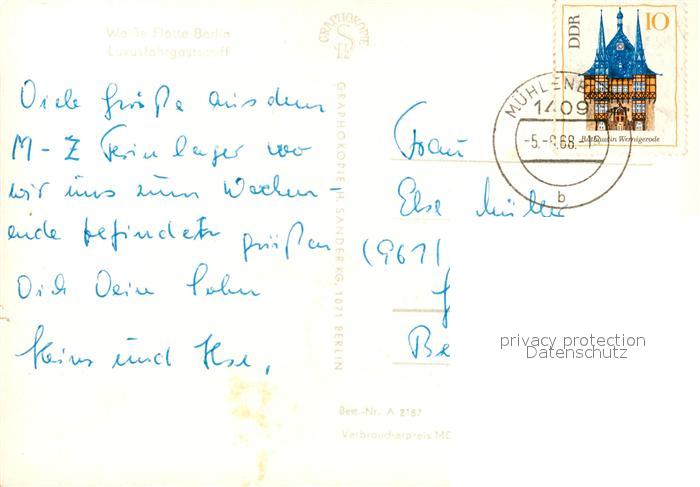 Weiße Flotte Berlin
Luxusfahrgastschiff
GRAPHOKOPIE
Viele Grüße aus dem
M-Z Ferienlager wo
wir uns zum Wochen-
ende befinden grüßen
Dich Deine Sohn
Heinz und Ilse,
GRAPHOKOPIE H. SANDER KG, 1071 BERLIN
DDR 10
Rathaus in Wernigerode
MÜHLENBE
1409
-5.-8.68.-1
b
Frau
Else Müller
(961)
Be
privacy protection
Datenschutz
Best.-Nr. A 2167
Verbraucherpreis M